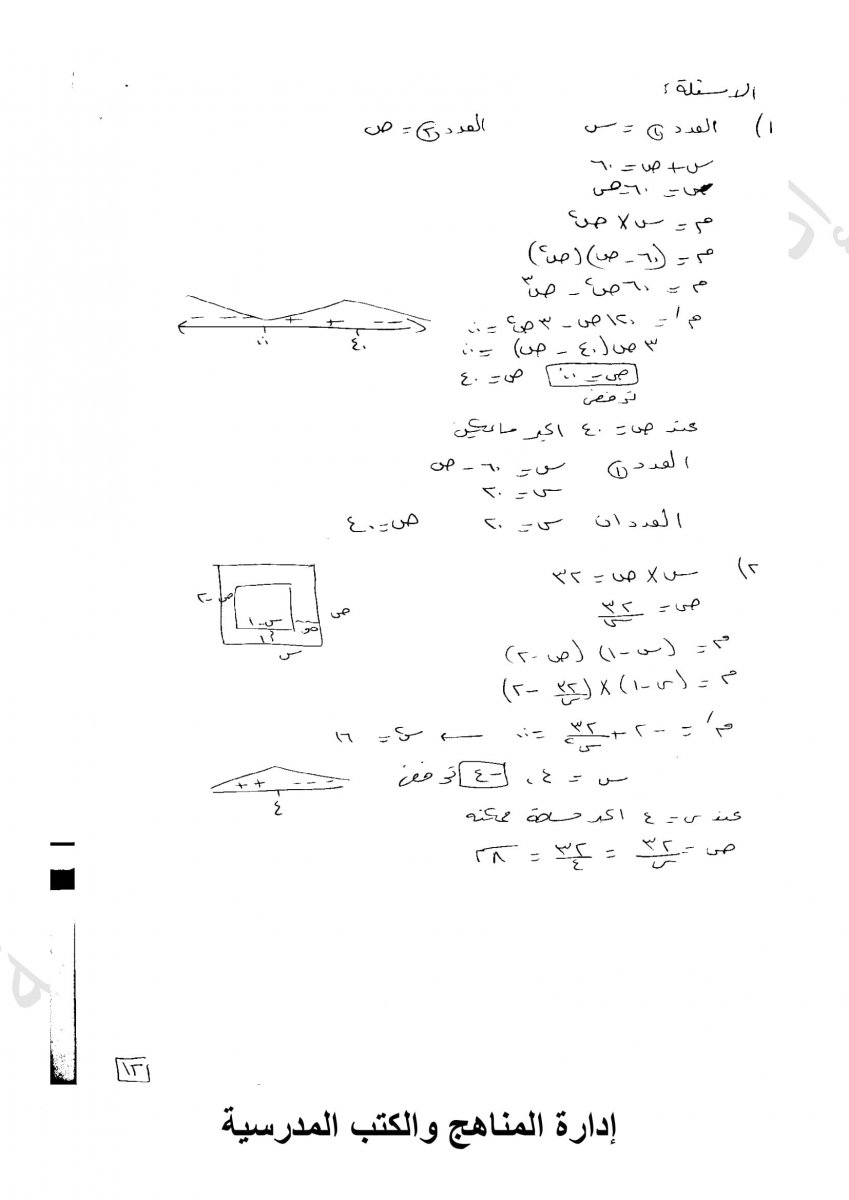 الاسئلة:
١) العدد ① = س العدد ② = ص
س + ص = ٦٠
س = ٦٠ - ص
م = س × ص²
م = (٦٠ - ص)(ص²)
م = ٦٠ص² - ص³
م' = ١٢٠ص - ٣ص² = ٠
٣ص(٤٠ - ص) = ٠
ص = ٠ ص = ٤٠
ترفض
- - - + + - -
٠ ٤٠
عند ص = ٤٠ اكبر مايمكن
العدد ① س = ٦٠ - ص
س = ٢٠
العددان س = ٢٠ ص = ٤٠
٢) س × ص = ٣٢
ص = ٣٢/س
ص - ٢ س - ١ ص
س
م = (س - ١)(ص - ٢)
م = (س - ١) × (٣٢/س - ٢)
م' = - ٢ + ٣٢/س² = ٠ ← س² = ١٦
س = ٤، - ٤ ترفض
+ + - - -
٤
عند س = ٤ اكبر مساحة ممكنه
ص = ٣٢/س = ٣٢/٤ = ٨
١٣
إدارة المناهج والكتب المدرسية